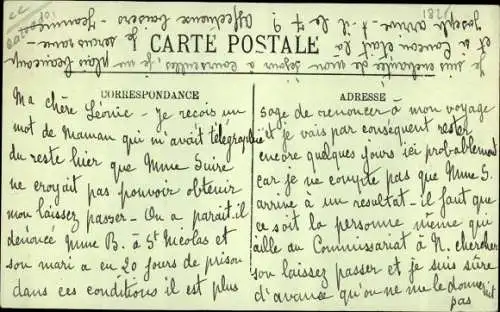 CARTE POSTALE
CORRESPONDANCE
Ma chère Léonie - Je reçois un
mot de Maman qui m'avait télégraphié
du reste hier que Mme Suire
ne croyait pas pouvoir obtenir
mon laissez passer - On a parait.il
dénoncé Mme B. à St Nicolas et
son mari a eu 20 jours de prison
dans ces conditions il est plus
ADRESSE
sage de renoncer à mon voyage
et je vais par conséquent rester
encore quelques jours ici probablement
car je ne compte pas que Mme S.
arrive à un résultat - il faut que
ce soit la personne même qui
aille au Commissariat à N. chercher
son laissez passer et je suis sûre
d'avance qu'on ne me le donnerait
pas
Je suis enchantée de mon séjour à
plus beaucoup
et si
était là
je serais ravie -
Joseph arrive - t-il le 7
Affectueux baisers - Jeanne